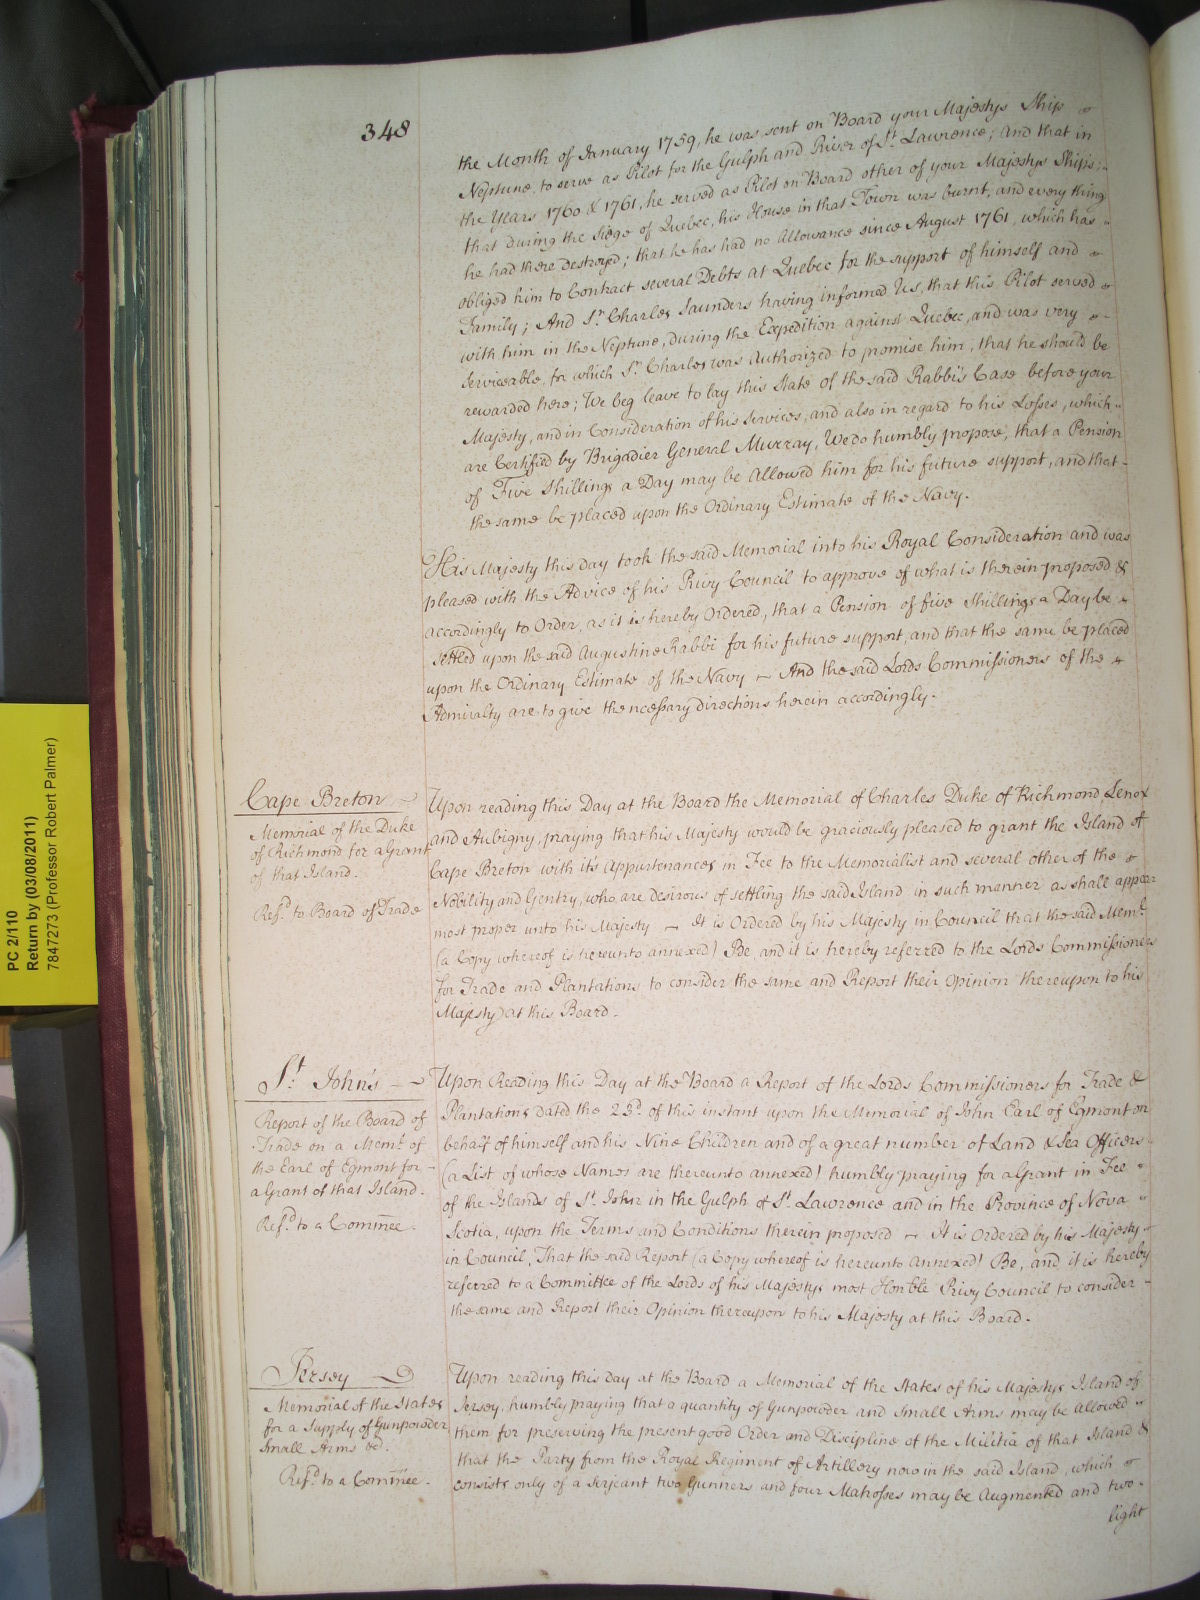 348
the Month of January 1759, he was sent on Board your Majestys Ship
Neptune, to serve as Pilot for the Gulph and River of St. Lawrence; And that in
the Years 1760 & 1761, he served as Pilot on Board other of your Majestys Ships;
that during the Siege of Quebec, his House in that Town was burnt, and every thing
he had there destroyed; that he has had no Allowance since August 1761, which has
obliged him to Contract several Debts at Quebec for the support of himself and
Family; And Sr. Charles Saunders having informed Us, that this Pilot served
with him in the Neptune, during the Expedition against Quebec, and was very
Serviceable, for which Sr. Charles was Authorized to promise him, that he should be
rewarded here; We beg leave to lay this State of the said Rabbi's Case before your
Majesty, and in Consideration of his Services, and also in regard to his Losses, which
are Certified by Brigadier General Murray, We do humbly propose, that a Pension
of Five Shillings a Day may be Allowed him for his future support, and that
the same be placed upon the Ordinary Estimate of the Navy.
His Majesty this day took the said Memorial into his Royal Consideration and was
pleased with the Advice of his Privy Council to approve of what is therein proposed &
accordingly to Order, as it is hereby Ordered, that a Pension of five Shillings a Day be
settled upon the said Augustine Rabbi for his future support, and that the same be placed
upon the Ordinary Estimate of the Navy — And the said Lords Commissioners of the
Admiralty are to give the necessary directions herein accordingly.
Cape Breton
Memorial of the Duke
of Richmond for a Grant
of that Island.
Refd. to Board of Trade
Upon reading this Day at the Board the Memorial of Charles Duke of Richmond, Lenox
and Aubigny, praying that his Majesty would be graciously pleased to grant the Island of
Cape Breton with it's Appurtenances in Fee to the Memorialist and several other of the
Nobility and Gentry, who are desirous of settling the said Island in such manner as shall appear
most proper unto his Majesty — It is Ordered by his Majesty in Council that the said Meml.
(a Copy whereof is hereunto annexed) Be, and it is hereby referred to the Lords Commissioners
for Trade and Plantations to consider the same and Report their Opinion thereupon to his
Majesty at this Board.
St. John's
Report of the Board of
Trade on a Meml. of
the Earl of Egmont for
a Grant of that Island.
Refd. to a Commee.
Upon Reading this Day at the Board a Report of the Lords Commissioners for Trade &
Plantations dated the 23d. of this instant upon the Memorial of John Earl of Egmont on
behalf of himself and his Nine Children and of a great number of Land & Sea Officers
(a List of whose Names are thereunto annexed) humbly praying for a Grant in Fee
of the Islands of St. John in the Gulph of St. Lawrence and in the Province of Nova
Scotia, upon the Terms and Conditions therein proposed — It is Ordered by his Majesty
in Council, That the said Report (a Copy whereof is hereunto annexed) Be, and it is hereby
referred to a Committee of the Lords of his Majestys most Honble Privy Council to consider
the same and Report their Opinion thereupon to his Majesty at this Board.
Jersey
Memorial of the States
for a Supply of Gunpowder
Small Arms &c.
Refd. to a Commee.
Upon reading this day at the Board a Memorial of the States of his Majestys Island of
Jersey, humbly praying that a quantity of Gunpowder and Small Arms may be allowed
them for preserving the present good Order and Discipline of the Militia of that Island &
that the Party from the Royal Regiment of Artillery now in the said Island, which
consists only of a Serjeant two Gunners and four Matrosses may be Augmented and two
light
PC 2/110
Return by (03/08/2011)
7847273 (Professor Robert Palmer)